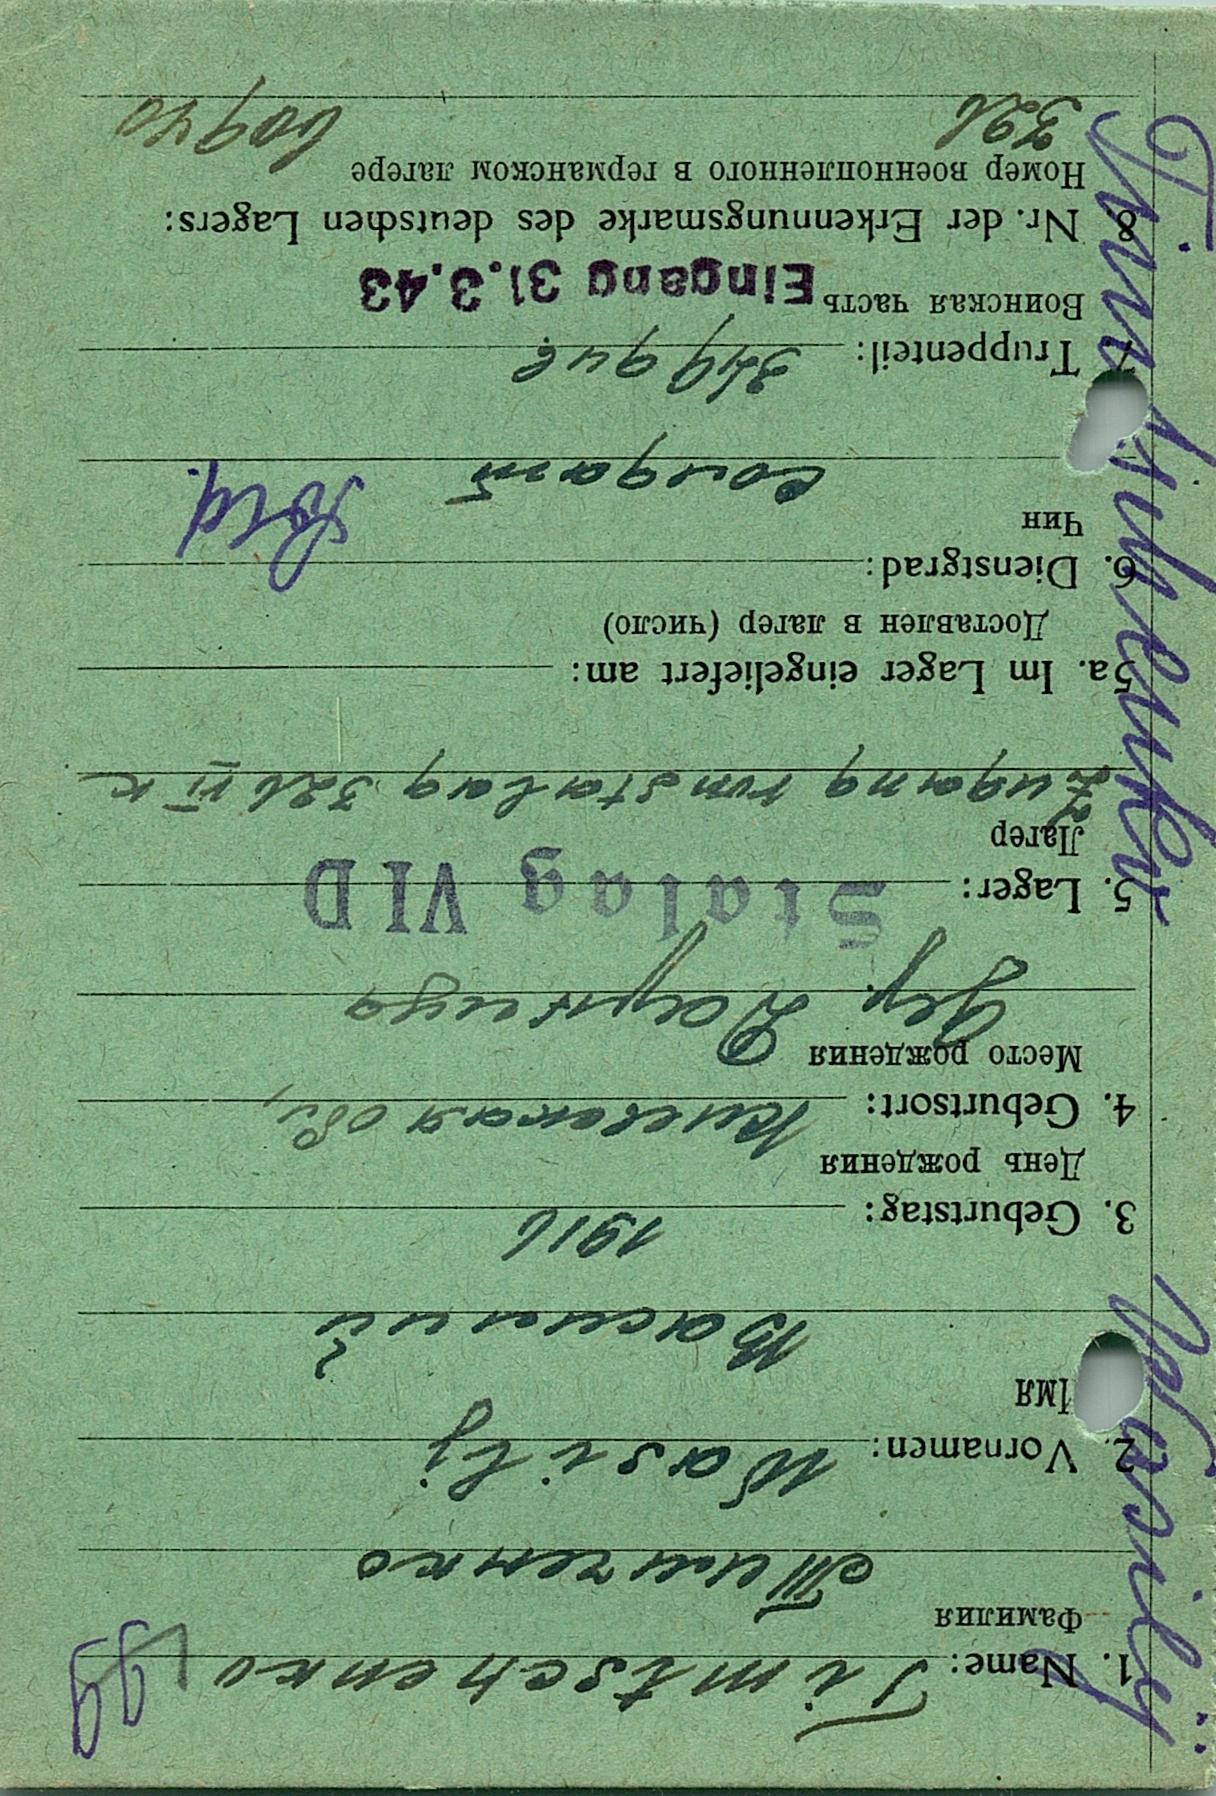 1. Name: Timtschenko
Фамилия
Тимченко
2. Vornamen: Wasilij
Имя
Василий
3. Geburtstag: 1916
День рождения
4. Geburtsort: Киевская обл,
Место рождения
дер.
5. Lager: Stalag VI D
Лагер
Zugang vom Stalag 326 VI K
5a. Im Lager eingeliefert am:
Доставлен в лагер (число)
6. Dienstgrad: Sold.
Чин
солдат
7. Truppenteil:
Воинская часть Eingang 31.3.43
8 Nr. der Erkennungsmarke des deutschen Lagers:
Номер военнопленного в германском лагере
326 60940
Timtschenko Wasilij